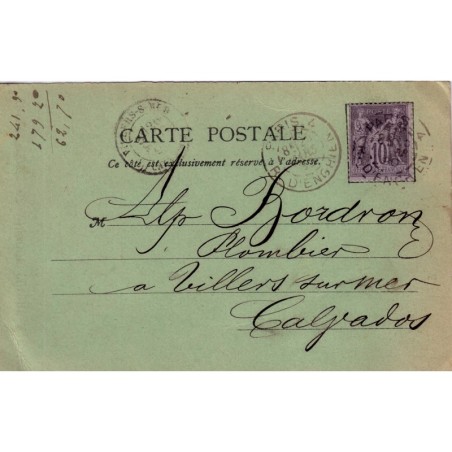 241.9
179 20
62.70
CARTE POSTALE
Ce côté est exclusivement réservé à l'adresse.
M Alp Bordron
Plombier
a Villers sur mer
Calvados
PARIS 4
R. D'ENGHIEN
10